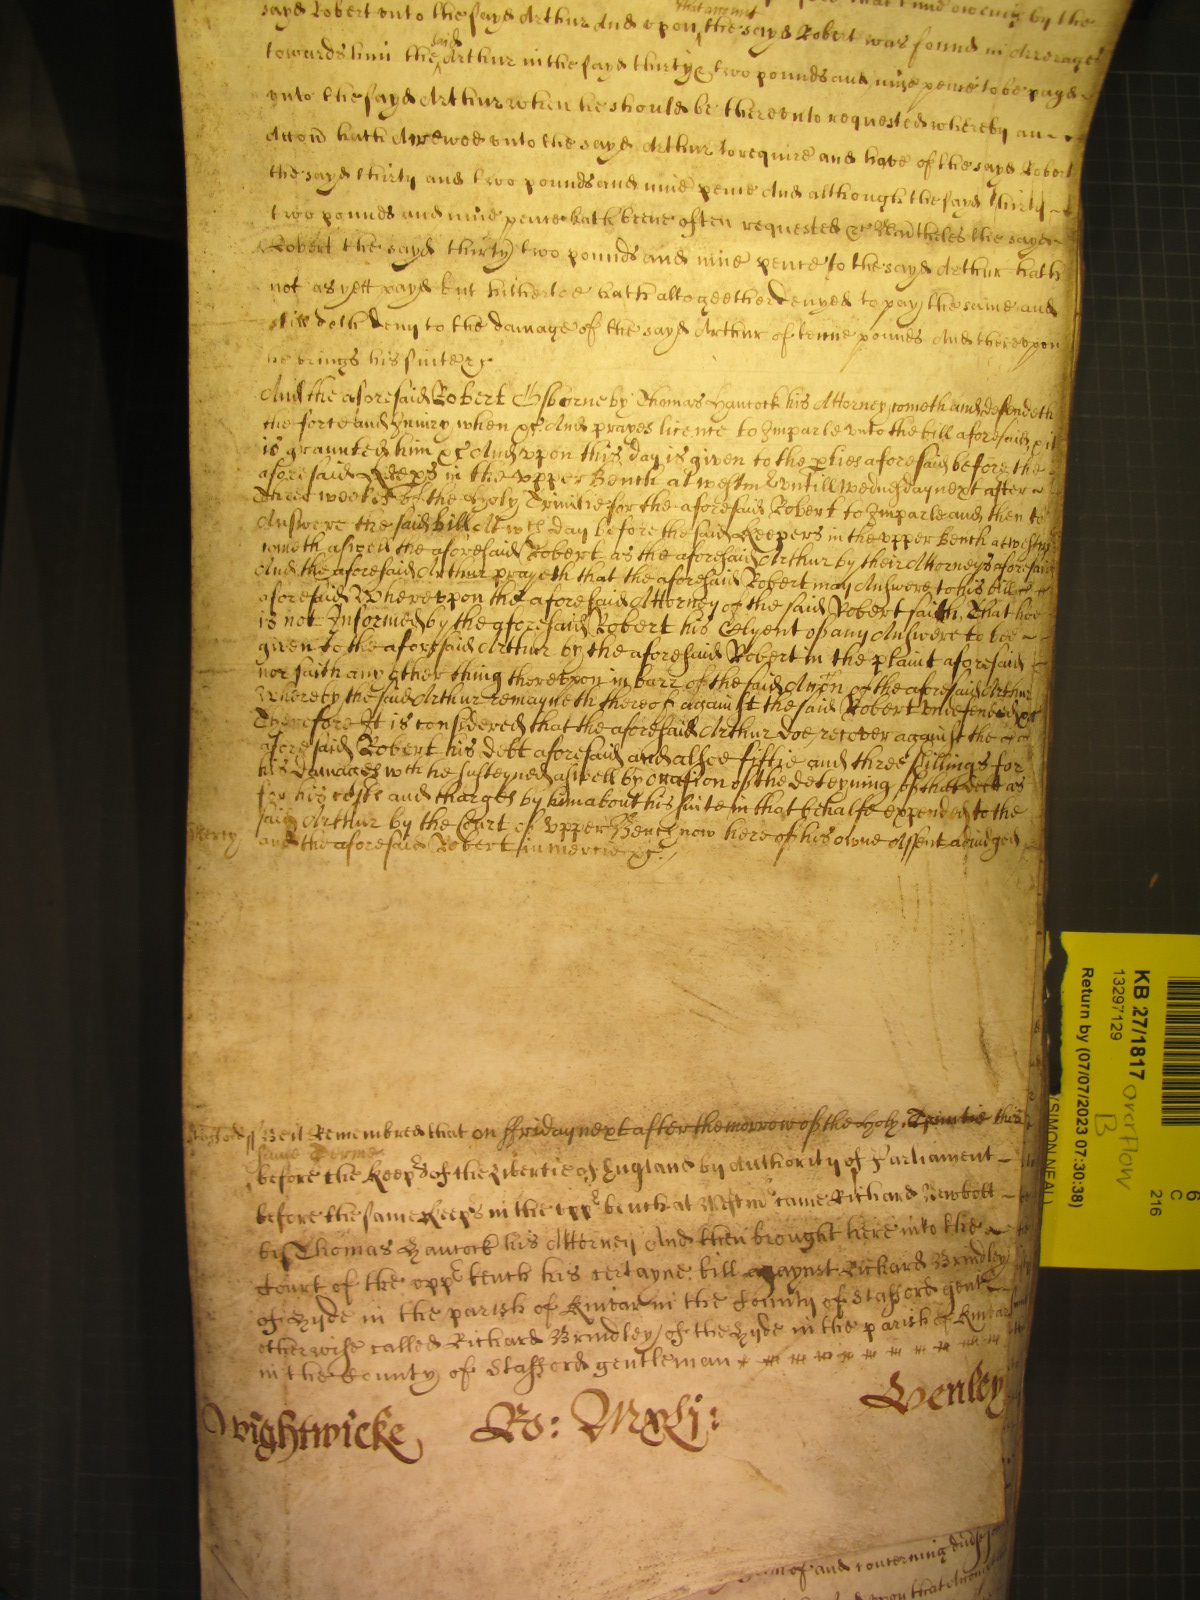 sayd Robert vnto the sayd Arthur And vpon that accompt the sayd Robert was found in arrerages
towards him the said Arthur in the sayd thirty & two pounds and nine pence to be payd
vnto the sayd Arthur when he should be therevnto requested whereby an
accon hath accrewed vnto the sayd Arthur to require and have of the sayd Robert
the sayd thirty and two pounds and nine pence And although the sayd thirty
two pounds and nine pence hath beene often requested &c Neatheles the sayd
Robert the sayd thirty two pounds and nine pence to the sayd Arthur hath
not as yett payd but hitherto hath altogeether denyed to pay the same and
still doth deny to the damage of the sayd Arthur of tenne pounds And therevpon
he brings his suite &c
And the aforesaid Robert Osborne by Thomas Hancock his Attorney cometh and defendeth
the force and Iniury when &c And prayes licence to Imparle vnto the bill aforesaid &c it
is graunted him &c And vpon this day is given to the pties aforesaid before the
aforesaid Keeps in the vpper Bench at westm vntill wednesday next after
Three weekes of the Holy Trinitie for the aforesaid Robert to Imparle and then to
Answere the said bill At wch day before the said Keepers in the vpper Bench at westm
cometh aswell the aforesaid Robert as the aforesaid Arthur by their Attorneys aforesaid
And the aforesaid Arthur prayeth that the aforesaid Robert may Answere to his bill
aforesaid Wherevpon the aforesaid Attorney of the said Robert saith That hee
is not Informed by the aforesaid Robert his Clyent of any Answere to bee
given to the aforesaid Arthur by the aforesaid Robert in the plaint aforesaid
nor saith any other thing therevpon in barr of the said Accon of the aforesaid Arthur
Whereby the said Arthur remayneth thereof against the said Robert vndefended &c
Therefore It is considered that the aforesaid Arthur doe recover against the
aforesaid Robert his debt aforesaid and alsoe fiftie and three shillings for
his damages wch he susteyned aswell by occasion of the deteyning of that debt as
for his costs and charges by him about his suite in that behalfe expended to the
said Arthur by the Court of vpper Bench now here of his owne Assent adiudged
Mercy
and the aforesaid Robert in mercie &c
Stafford ss Be it Remembred that on ffriday next after the morrow of the Holy Trinitie this
same Terme
before the Keeps of the Libertie of England by Authority of Parliament
before the same Keeps in the vpp bench at Westm came Richard Newbolt
by Thomas Hancock his Attorney And then brought here into the
Court of the vpp bench his certayne bill agaynst Richard Brindley
of Hyde in the parish of Kinvar in the County of Stafford gent
otherwise called Richard Brindley of the Hyde in the parish of Kinvar
in the County of Stafford gentleman
Wightwicke Ro: Mxlj: Henley
of and concerning
vpon that
KB 27/1817
13297129
Return by (07/07/2023 07:30:38)
overflow
B
SIMON NEAL
216
C
6